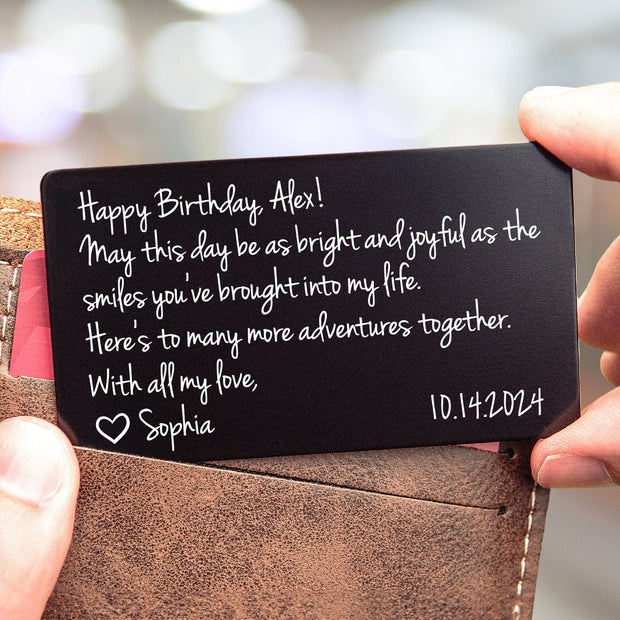 Happy Birthday, Alex!
May this day be as bright and joyful as the
smiles you've brought into my life.
Here's to many more adventures together.
With all my love,
♡ Sophia
10.14.2024